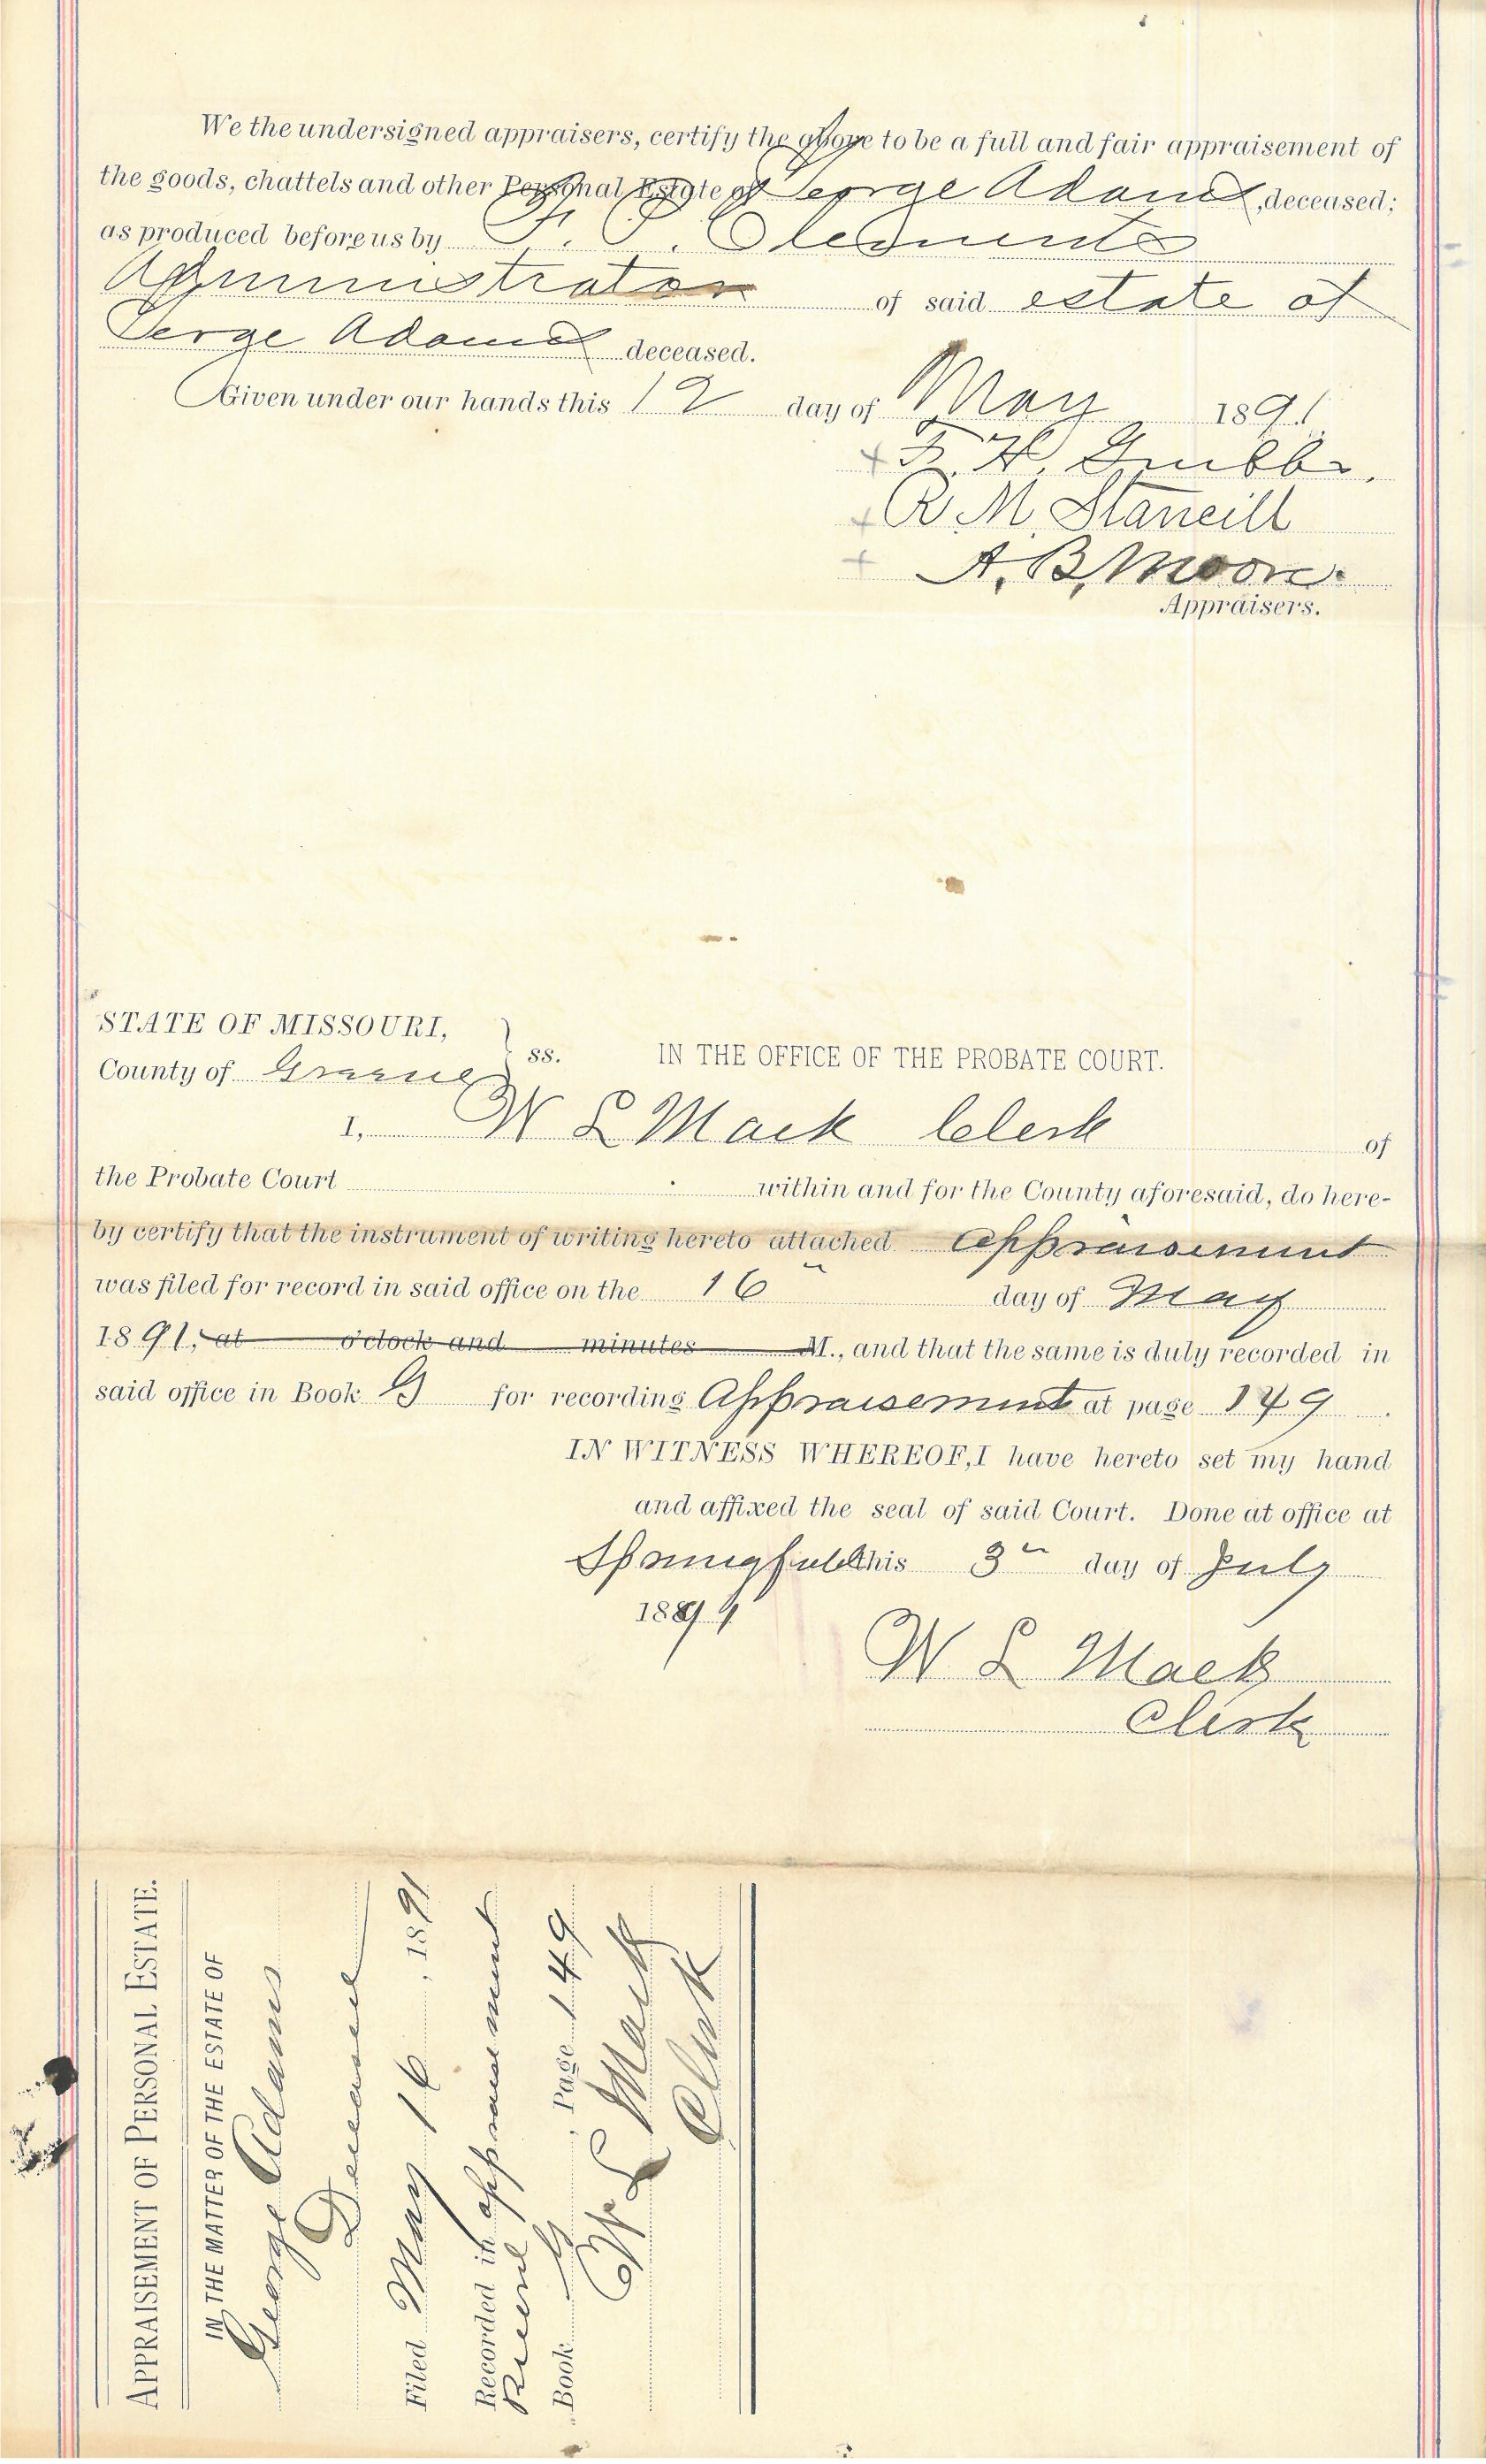 We the undersigned appraisers, certify the above to be a full and fair appraisement of
the goods, chattels and other Personal Estate of George Adams, deceased;
as produced before us by F. P. Clements
Administrator of said estate of
Gerge Adams deceased.
Given under our hands this 12 day of May 1891.
+ F. H. Grubbs.
+ R. M. Stancill
+ A. B. Moore.
Appraisers.
STATE OF MISSOURI,
County of Greene } ss. IN THE OFFICE OF THE PROBATE COURT.
I, W L Mack Clerk of
the Probate Court within and for the County aforesaid, do here-
by certify that the instrument of writing hereto attached Appraisement
was filed for record in said office on the 16" day of May
1891, at o'clock and minutes M., and that the same is duly recorded in
said office in Book G for recording Appraisement at page 149.
IN WITNESS WHEREOF, I have hereto set my hand
and affixed the seal of said Court. Done at office at
Springfield this 3" day of July
1891
W L Mack
Clerk
APPRAISEMENT OF PERSONAL ESTATE.
IN THE MATTER OF THE ESTATE OF
George Adams
Deceased
Filed May 16, 1891
Recorded in appraisement
Record
Book G, Page 149
W L Mack
Clerk